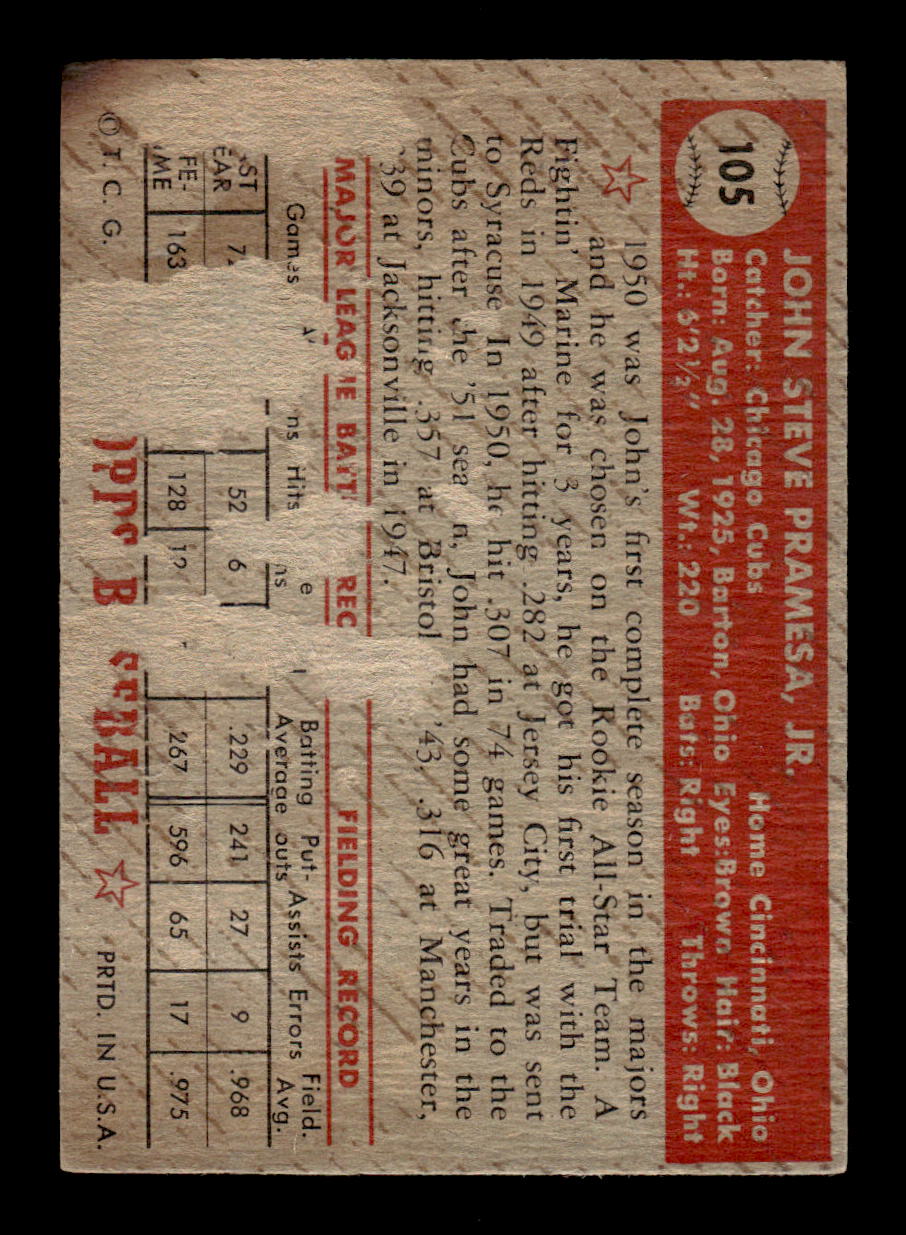 105
JOHN STEVE PRAMESA, JR.
Catcher: Chicago Cubs Home Cincinnati, Ohio
Born: Aug. 28, 1925, Barton, Ohio Eyes: Brown Hair: Black
Ht.: 6'2½" Wt.: 220 Bats: Right Throws: Right
1950 was John's first complete season in the majors
and he was chosen on the Rookie All-Star Team. A
Fightin' Marine for 3 years, he got his first trial with the
Reds in 1949 after hitting .282 at Jersey City, but was sent
to Syracuse In 1950, he hit .307 in 74 games. Traded to the
Cubs after he '51 sea n, John had some great years in the
minors, hitting .357 at Bristol '43, .316 at Manchester,
39 at Jacksonville in 1947.
MAJOR LEAG E BATT REC FIELDING RECORD
Games ns Hits e ns Batting Average Put-outs Assists Errors Field. Avg.
ST EAR 7 52 6 .229 241 27 9 .968
FE- ME 163 128 12 .267 596 65 17 .975
© T. C. G. OPPS B SEBALL PRTD. IN U.S.A.